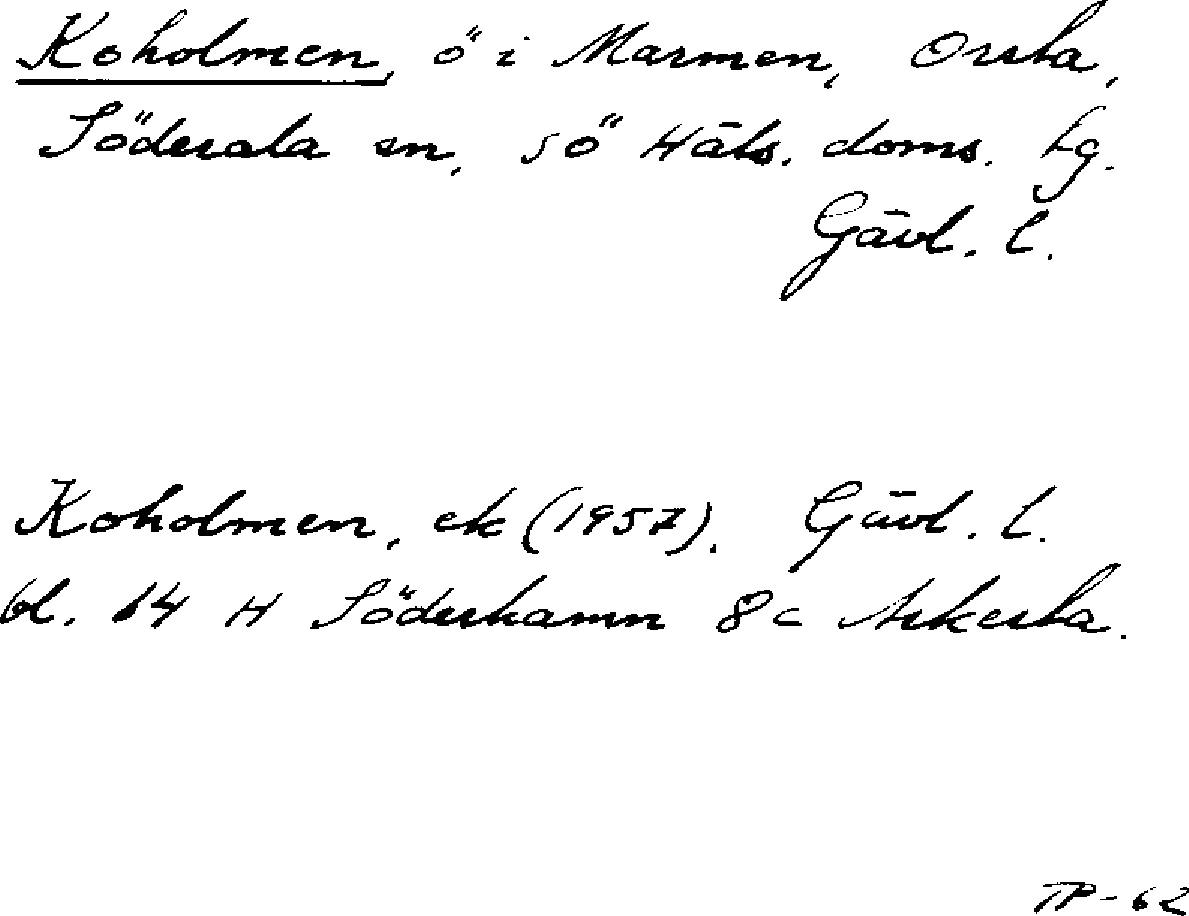 Koholmen, ö i Marmen, Orsta,
Söderala sn, sö Häls. doms. tg.
Gävl. l.
Koholmen, ek (1957). Gävl. l.
bl. 14 H Söderhamn 8c Askesta.
TP-62